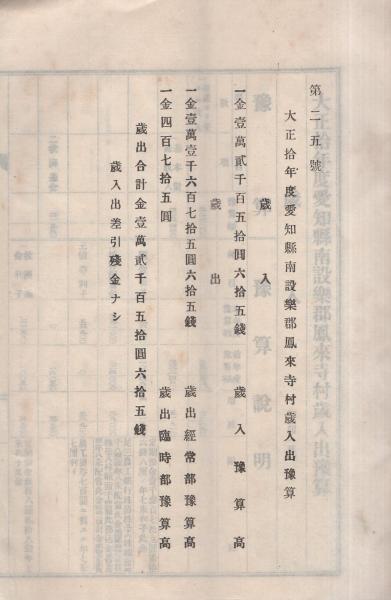 第二五號
大正拾年度愛知縣南設樂郡鳳來寺村歲入出豫算
歲入
一金壹萬貳千百五拾圓六拾五錢 歲入豫算高
歲出
一金壹萬壹千六百七拾五圓六拾五錢 歲出經常部豫算高
一金四百七拾五圓 歲出臨時部豫算高
歲出合計金壹萬貳千百五拾圓六拾五錢
歲入出差引殘金ナシ